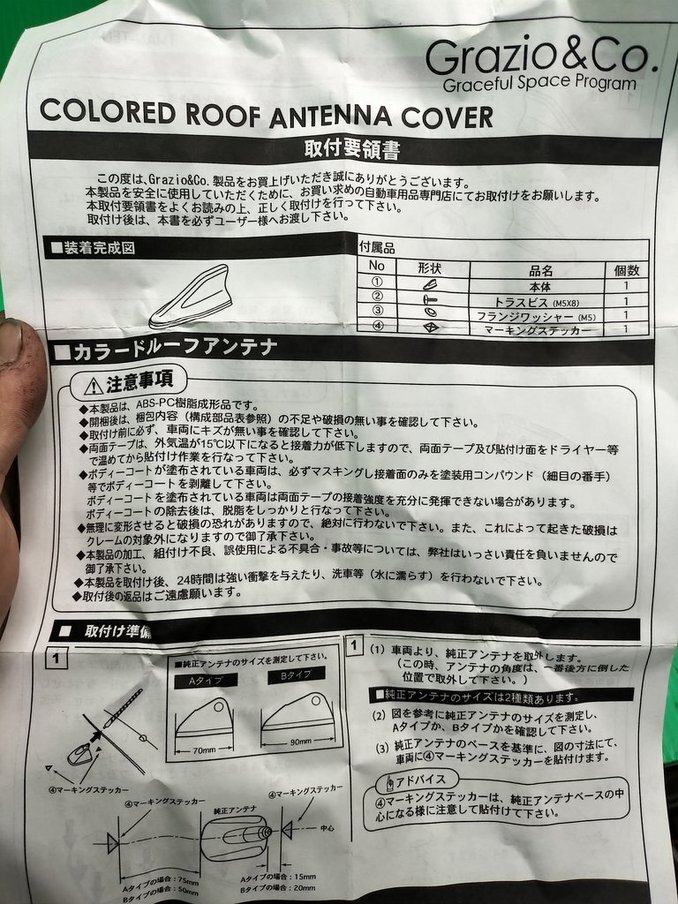 Grazio&Co.
Graceful Space Program
COLORED ROOF ANTENNA COVER
取付要領書
この度は、Grazio&Co. 製品をお買上げいただき誠にありがとうございます。
本製品を安全に使用していただくために、お買い求めの自動車用品専門店にてお取付けをお願いします。
本取付要領書をよくお読みの上、正しく取付けを行って下さい。
取付け後は、本書を必ずユーザー様へお渡し下さい。
■装着完成図
付属品
No 形状 品名 個数
① 本体 1
② トラスビス (M5X8) 1
③ フランジワッシャー (M5) 1
④ マーキングステッカー 1
■カラードルーフアンテナ
注意事項
◆本製品は、ABS-PC樹脂成形品です。
◆開梱後は、梱包内容（構成部品表参照）の不足や破損の無い事を確認して下さい。
◆取付け前に必ず、車両にキズが無い事を確認して下さい。
◆両面テープは、外気温が15℃以下になると接着力が低下しますので、両面テープ及び貼付け面をドライヤー等
で温めてから貼付け作業を行なって下さい。
◆ボディーコートが塗布されている車両は、必ずマスキングし接着面のみを塗装用コンパウンド（細目の番手）
等でボディーコートを剥離して下さい。
ボディーコートを塗布されている車両は両面テープの接着強度を充分に発揮できない場合があります。
ボディーコートの除去後は、脱脂をしっかりと行なって下さい。
◆無理に変形させると破損の恐れがありますので、絶対に行わないで下さい。また、これによって起きた破損は
クレームの対象外になりますので御了承下さい。
◆本製品の加工、組付け不良、誤使用による不具合・事故等については、弊社はいっさい責任を負いませんので
御了承下さい。
◆本製品を取付け後、24時間は強い衝撃を与えたり、洗車等（水に濡らす）を行わないで下さい。
◆取付後の返品はご遠慮願います。
■ 取付け準備
1
■純正アンテナのサイズを測定して下さい。
Aタイプ Bタイプ
70mm 90mm
④マーキングステッカー
④マーキングステッカー
純正アンテナ
④マーキングステッカー
中心
Aタイプの場合：75mm
Bタイプの場合：50mm
Aタイプの場合：15mm
Bタイプの場合：20mm
1
(1) 車両より、純正アンテナを取外します。
（この時、アンテナの角度は、一番後方に倒した
位置で取外して下さい。）
■純正アンテナのサイズは2種類あります。
(2) 図を参考に純正アンテナのサイズを測定し、
Aタイプか、Bタイプかを確認して下さい。
(3) 純正アンテナのベースを基準に、図の寸法にて、
車両に④マーキングステッカーを貼付けます。
アドバイス
④マーキングステッカーは、純正アンテナベースの中
心になる様に注意して貼付けて下さい。